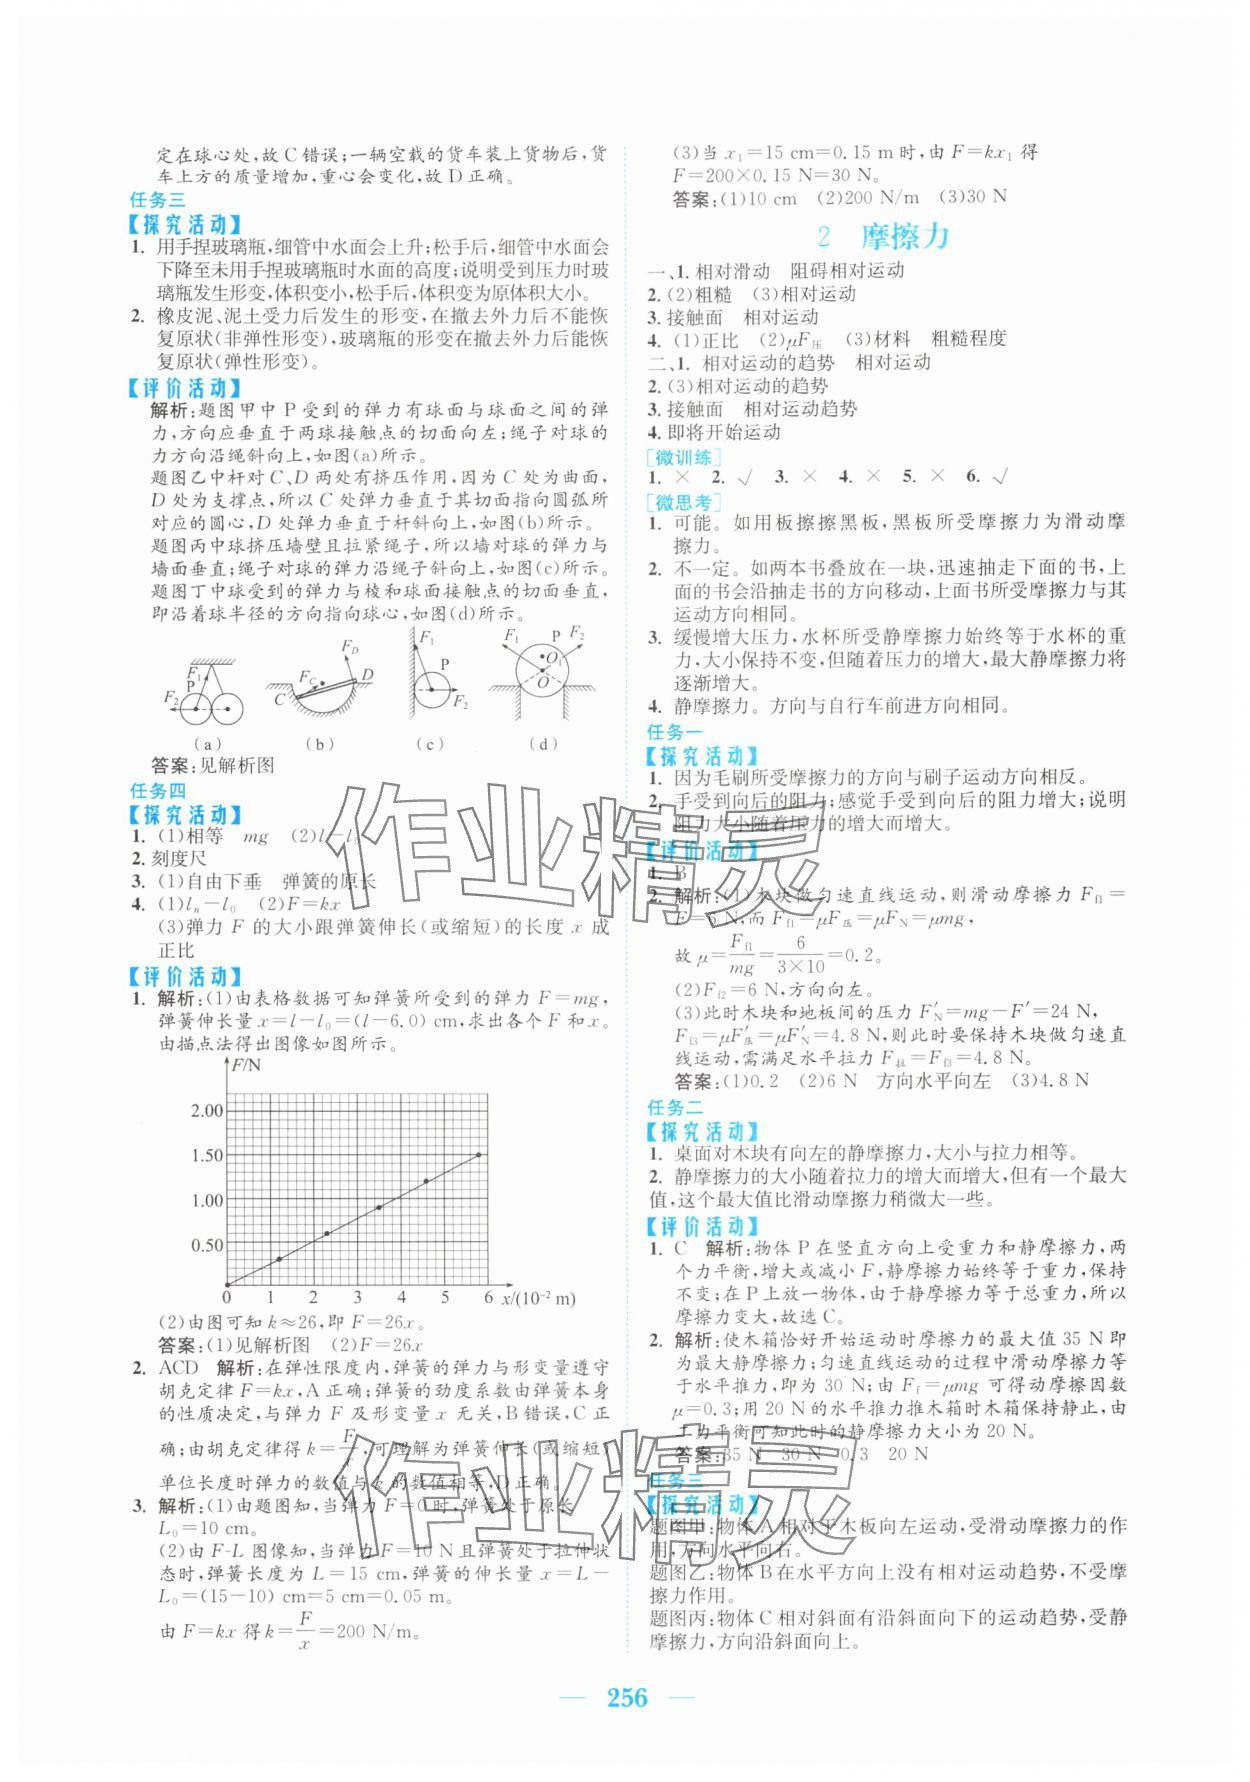 定在球心处,故C错误;一辆空载的货车装上货物后,货
车上方的质量增加,重心会变化,故D正确。
任务三
【探究活动】
1. 用手捏玻璃瓶,细管中水面会上升;松手后,细管中水面会
下降至未用手捏玻璃瓶时水面的高度;说明受到压力时玻
璃瓶发生形变,体积变小,松手后,体积变为原体积大小。
2. 橡皮泥、泥土受力后发生的形变,在撤去外力后不能恢
复原状(非弹性形变),玻璃瓶的形变在撤去外力后能恢
复原状(弹性形变)。
【评价活动】
解析:题图甲中P受到的弹力有球面与球面之间的弹
力,方向应垂直于两球接触点的切面向左;绳子对球的
力方向沿绳斜向上,如图(a)所示。
题图乙中杆对C、D两处有挤压作用,因为C处为曲面,
D处为支撑点,所以C处弹力垂直于其切面指向圆弧所
对应的圆心,D处弹力垂直于杆斜向上,如图(b)所示。
题图丙中球挤压墙壁且拉紧绳子,所以墙对球的弹力与
墙面垂直;绳子对球的弹力沿绳子斜向上,如图(c)所示。
题图丁中球受到的弹力与棱和球面接触点的切面垂直,
即沿着球半径的方向指向球心,如图(d)所示。
F₁ P F₂ (a)
F_C F_D C D (b)
F₁ P F₂ (c)
F₁ P F₂ O₁ O (d)
答案:见解析图
任务四
【探究活动】
1. (1)相等 mg (2)l-l₀
2. 刻度尺
3. (1)自由下垂 弹簧的原长
4. (1)lₙ-l₀ (2)F=kx
(3)弹力F的大小跟弹簧伸长(或缩短)的长度x成
正比
【评价活动】
1. 解析:(1)由表格数据可知弹簧所受到的弹力F=mg,
弹簧伸长量x=l-l₀=(l-6.0) cm,求出各个F和x。
由描点法得出图像如图所示。
F/N
2.00
1.50
1.00
0.50
0 1 2 3 4 5 6 x/(10⁻² m)
(2)由图可知k≈26,即F=26x。
答案:(1)见解析图 (2)F=26x
2. ACD 解析:在弹性限度内,弹簧的弹力与形变量遵守
胡克定律F=kx,A正确;弹簧的劲度系数由弹簧本身
的性质决定,与弹力F及形变量x无关,B错误,C正
确;由胡克定律得k=F/x,可理解为弹簧伸长(或缩短)
单位长度时弹力的数值与k的数值相等,D正确。
3. 解析:(1)由题图知,当弹力F=0时,弹簧处于原长
L₀=10 cm。
(2)由F-L图像知,当弹力F=10 N且弹簧处于拉伸状
态时,弹簧长度为L=15 cm,弹簧的伸长量x=L-
L₀=(15-10) cm=5 cm=0.05 m。
由F=kx得k=F/x=200 N/m。
(3)当x₁=15 cm=0.15 m时,由F=kx₁得
F=200×0.15 N=30 N。
答案:(1)10 cm (2)200 N/m (3)30 N
2 摩擦力
一、1. 相对滑动 阻碍相对运动
2. (2)粗糙 (3)相对运动
3. 接触面 相对运动
4. (1)正比 (2)μF压 (3)材料 粗糙程度
二、1. 相对运动的趋势 相对运动
2. (3)相对运动的趋势
3. 接触面 相对运动趋势
4. 即将开始运动
[微训练]
1. × 2. √ 3. × 4. × 5. × 6. √
[微思考]
1. 可能。如用板擦擦黑板,黑板所受摩擦力为滑动摩
擦力。
2. 不一定。如两本书叠放在一块,迅速抽走下面的书,上
面的书会沿抽走书的方向移动,上面书所受摩擦力与其
运动方向相同。
3. 缓慢增大压力,水杯所受静摩擦力始终等于水杯的重
力,大小保持不变,但随着压力的增大,最大静摩擦力将
逐渐增大。
4. 静摩擦力。方向与自行车前进方向相同。
任务一
【探究活动】
1. 因为毛刷所受摩擦力的方向与刷子运动方向相反。
2. 手受到向后的阻力;感觉手受到向后的阻力增大;说明
阻力大小随着压力的增大而增大。
【评价活动】
1. B
2. 解析:(1)木块做匀速直线运动,则滑动摩擦力F_f1=
F=6 N,而F_f1=μF压=μF_N=μmg,
故μ=F_f1/mg=6/(3×10)=0.2。
(2)F_f2=6 N,方向向左。
(3)此时木块和地板间的压力F′_N=mg-F′=24 N,
F_f3=μF′压=μF′_N=4.8 N,则此时要保持木块做匀速直
线运动,需满足水平拉力F拉=F_f3=4.8 N。
答案:(1)0.2 (2)6 N 方向水平向左 (3)4.8 N
任务二
【探究活动】
1. 桌面对木块有向左的静摩擦力,大小与拉力相等。
2. 静摩擦力的大小随着拉力的增大而增大,但有一个最大
值,这个最大值比滑动摩擦力稍微大一些。
【评价活动】
1. C 解析:物体P在竖直方向上受重力和静摩擦力,两
个力平衡,增大或减小F,静摩擦力始终等于重力,保持
不变;在P上放一物体,由于静摩擦力等于总重力,所以
摩擦力变大,故选C。
2. 解析:使木箱恰好开始运动时摩擦力的最大值35 N即
为最大静摩擦力;匀速运动的过程中滑动摩擦力等
于水平推力,即为30 N;由F_f=μmg可得动摩擦因数
μ=0.3;用20 N的水平推力推木箱时木箱保持静止,由
二力平衡可知此时的静摩擦力大小为20 N。
答案:35 N 30 N 0.3 20 N
任务三
【探究活动】
题图甲:物体A相对于木板向左运动,受滑动摩擦力的作
用,方向水平向右。
题图乙:物体B在水平方向上没有相对运动趋势,不受摩
擦力作用。
题图丙:物体C相对斜面有沿斜面向下的运动趋势,受静
摩擦力,方向沿斜面向上。
作业精灵
作业精灵
256